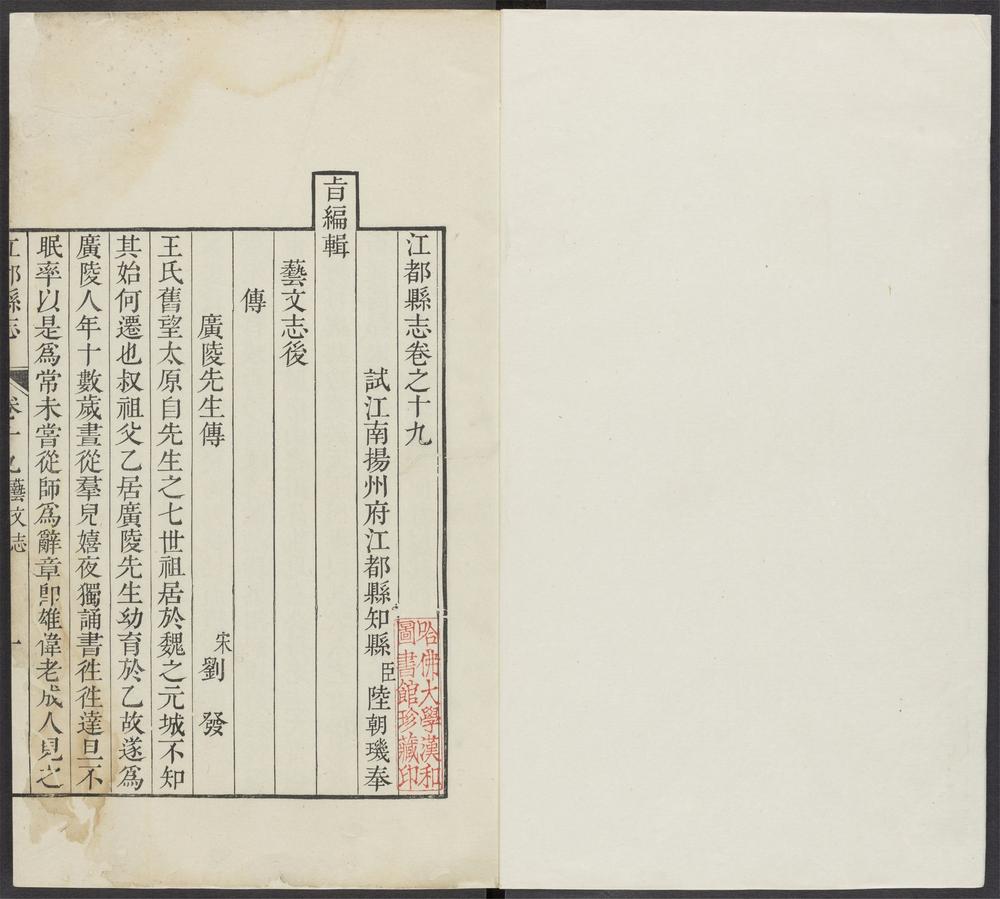 江都縣志卷之十九
試江南揚州府江都縣知縣臣陸朝璣奉
旨編輯
藝文志後
傳
廣陵先生傳 宋劉發
王氏舊望太原自先生之七世祖居於魏之元城不知
其始何遷也叔祖父乙居廣陵先生幼育於乙故遂為
廣陵人年十數歲晝從羣兒嬉夜獨誦書徃徃達旦不
眠率以是為常未嘗從師為辭章卽雄偉老成人見之
江都縣志 卷十九藝文志 一
哈佛大學漢和
圖書館珍藏印